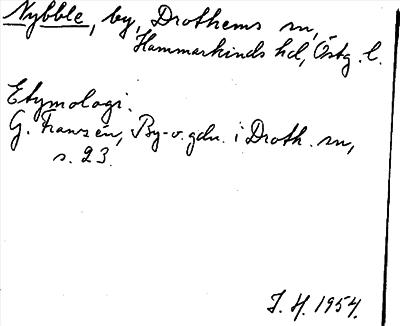 Nybble, by, Drothems sn,
Hammarkinds hd, Östg. l.
Etymologi.
G. Franzén, By- o. gdn. i Droth. sn,
s. 23.
J. H. 1954.